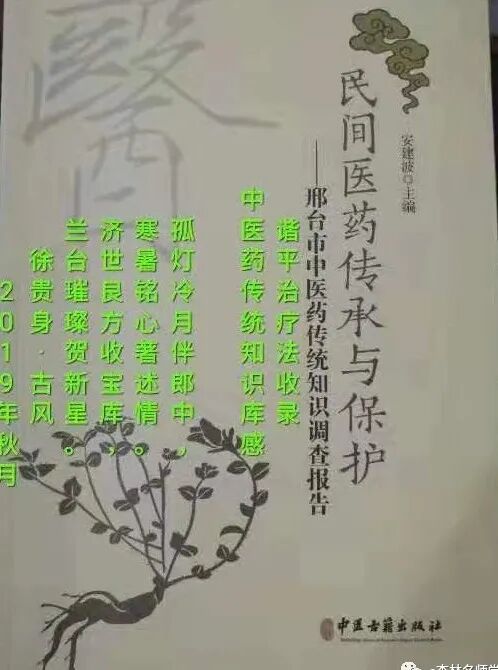 醫
民间医药传承与保护
安建波◎主编
——邢台市中医药传统知识调查报告
谐平治疗法收录
中医药传统知识库感
孤灯冷月伴郎中，
寒暑铭心著述情。
济世良方收宝库，
兰台璀璨贺新星。
徐贵身·古风
2019年秋月
中医古籍出版社
杏林名师堂